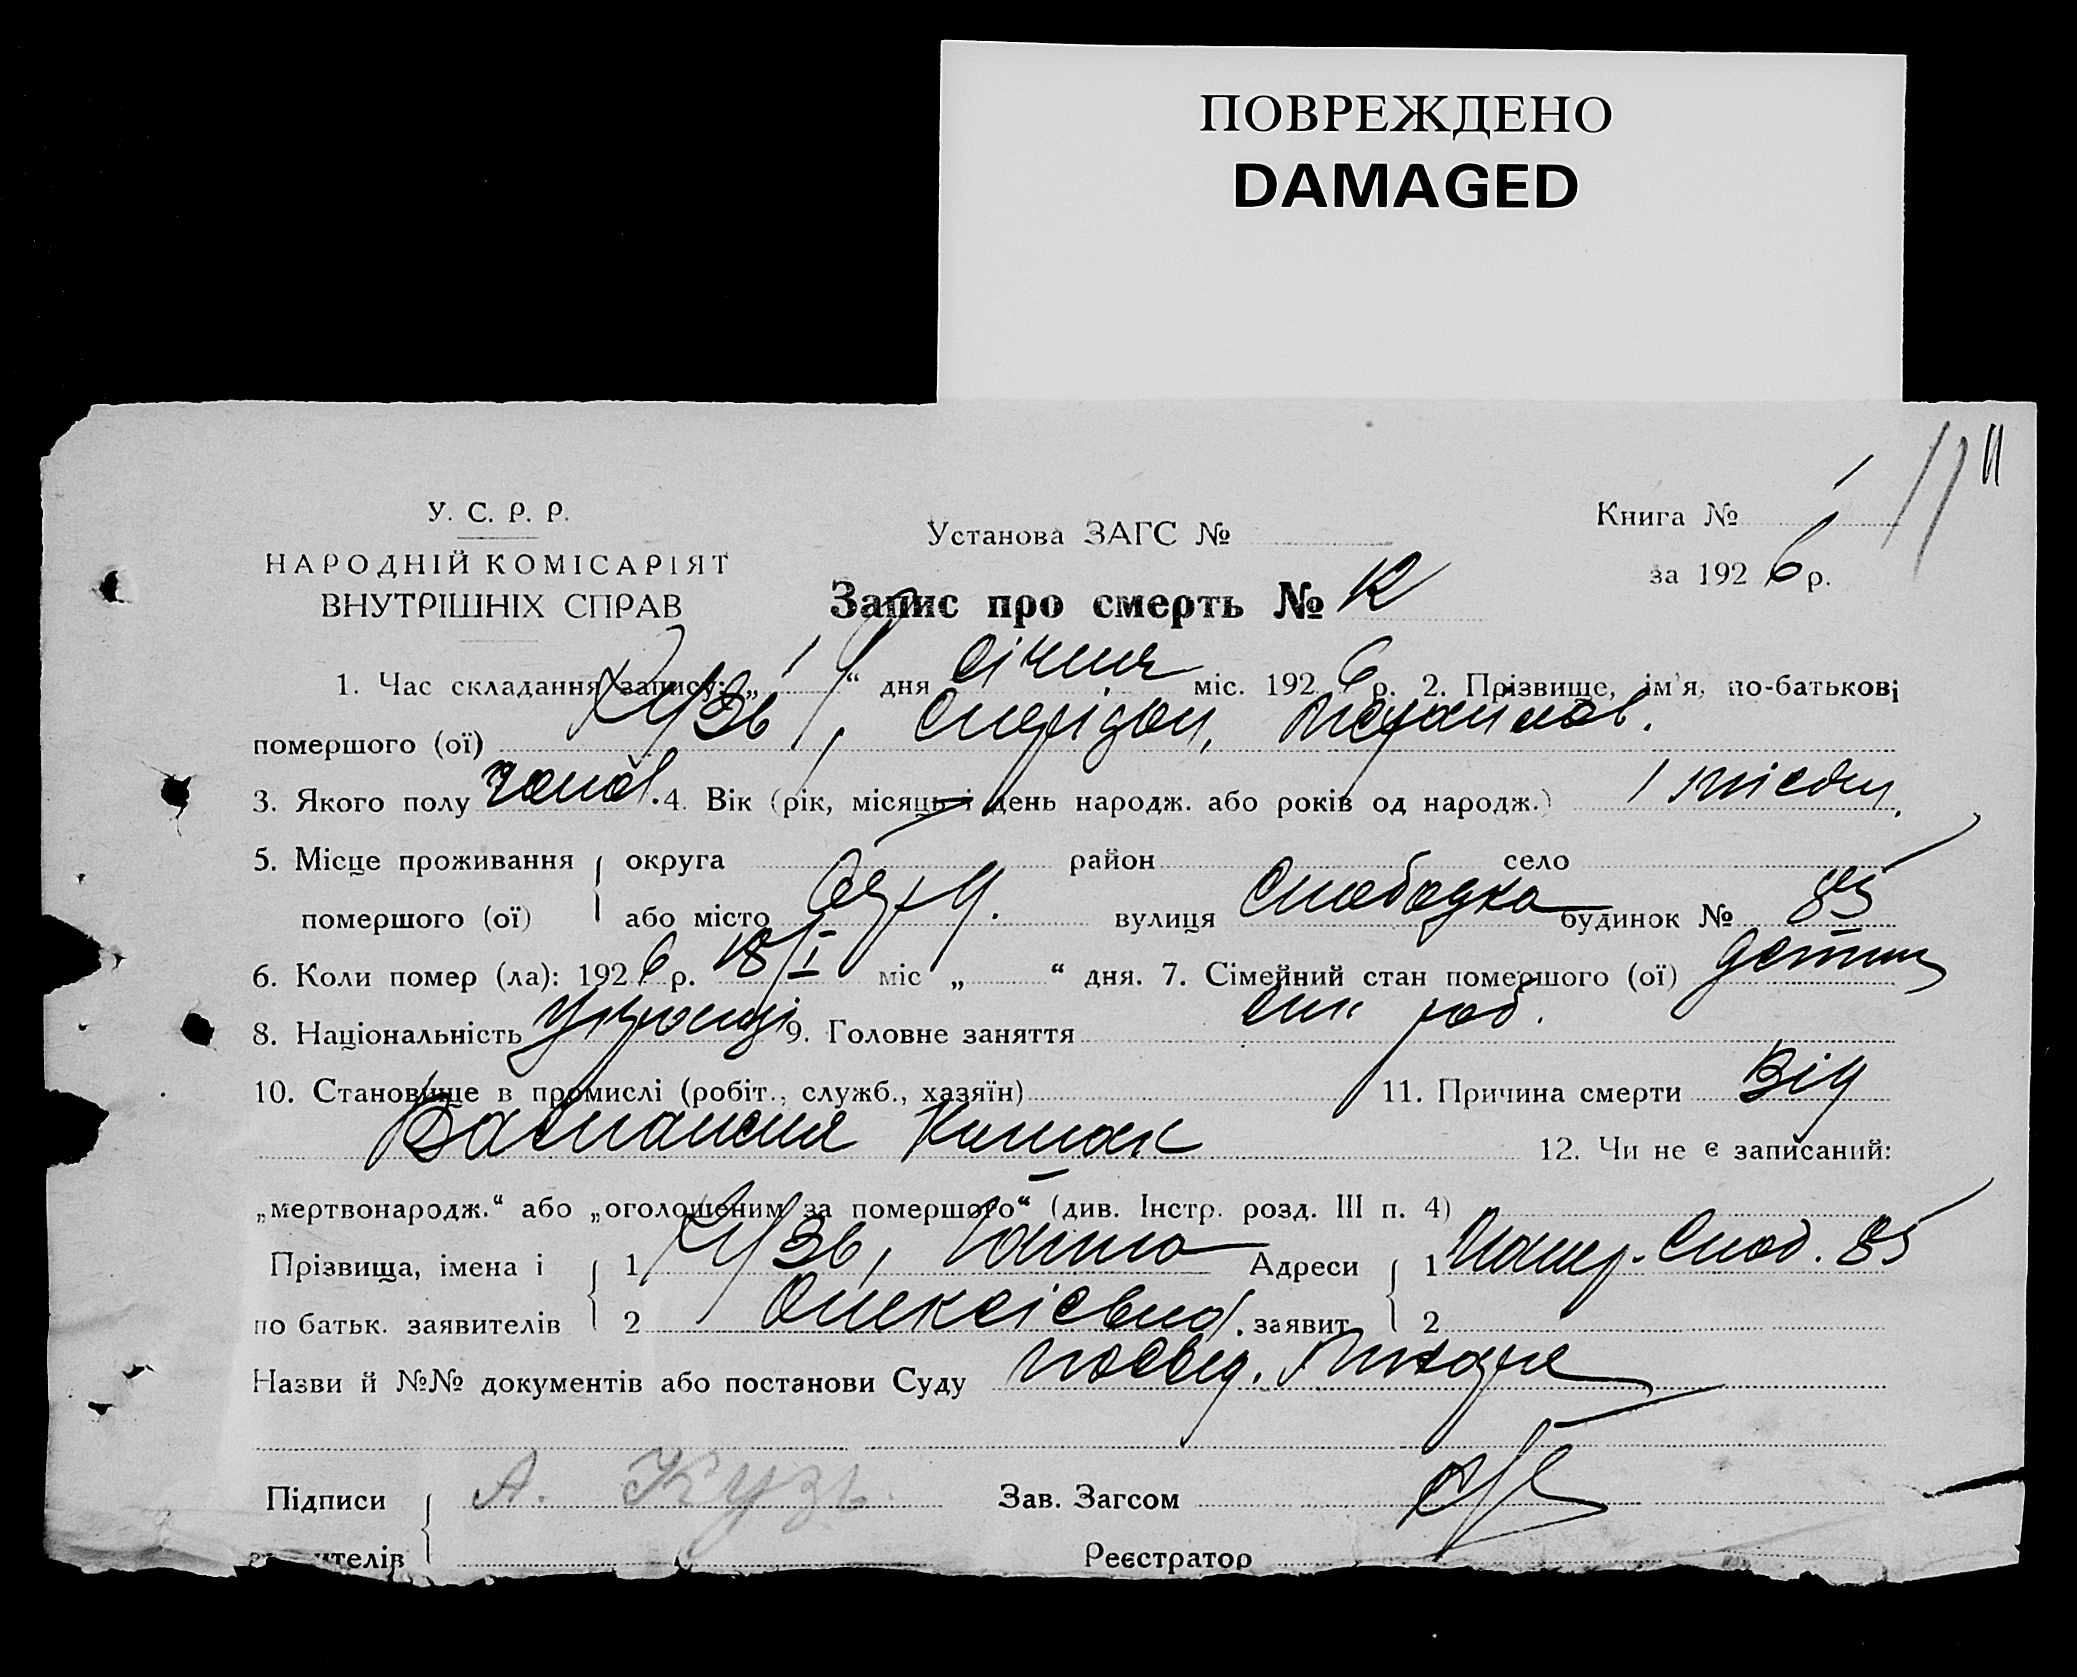 ПОВРЕЖДЕНО
DAMAGED
У. С. Р. Р.
НАРОДНІЙ КОМІСАРІЯТ
ВНУТРІШНІХ СПРАВ
Установа ЗАГС №
Запис про смерть № 12
Книга № 1
11
за 1926 р.
1. Час складання запису: „ “ дня січня міс. 1926 р. 2. Прізвище, ім'я, по-батькові
помершого (ої) Кузь, Спірідон, Михайлов.
3. Якого полу чолов. 4. Вік (рік, місяць і день народж. або років од народж.) 1 місяц,
5. Місце проживання округа район село
помершого (ої) або місто вулиця Слободка будинок № 85
6. Коли помер (ла): 1926 р. 18/I міс „ “ дня. 7. Сімейний стан помершого (ої) детина
8. Національність 9. Головне заняття син роб.
10. Становище в промислі (робіт., служб., хазяїн) 11. Причина смерти Від
Запалення Кишок 12. Чи не є записаний:
„мертвонародж.“ або „оголошеним за помершого“ (див. Інстр. розд. III п. 4)
Прізвища, імена і 1 Кузь, Ганна Адреси 1 Слоб. 85
по батьк. заявителів 2 Олексієвна. заявит. 2
Назви й №№ документів або постанови Суду посвід. Лікаря
Підписи А. Кузь. Зав. Загсом
ителів Реєстратор